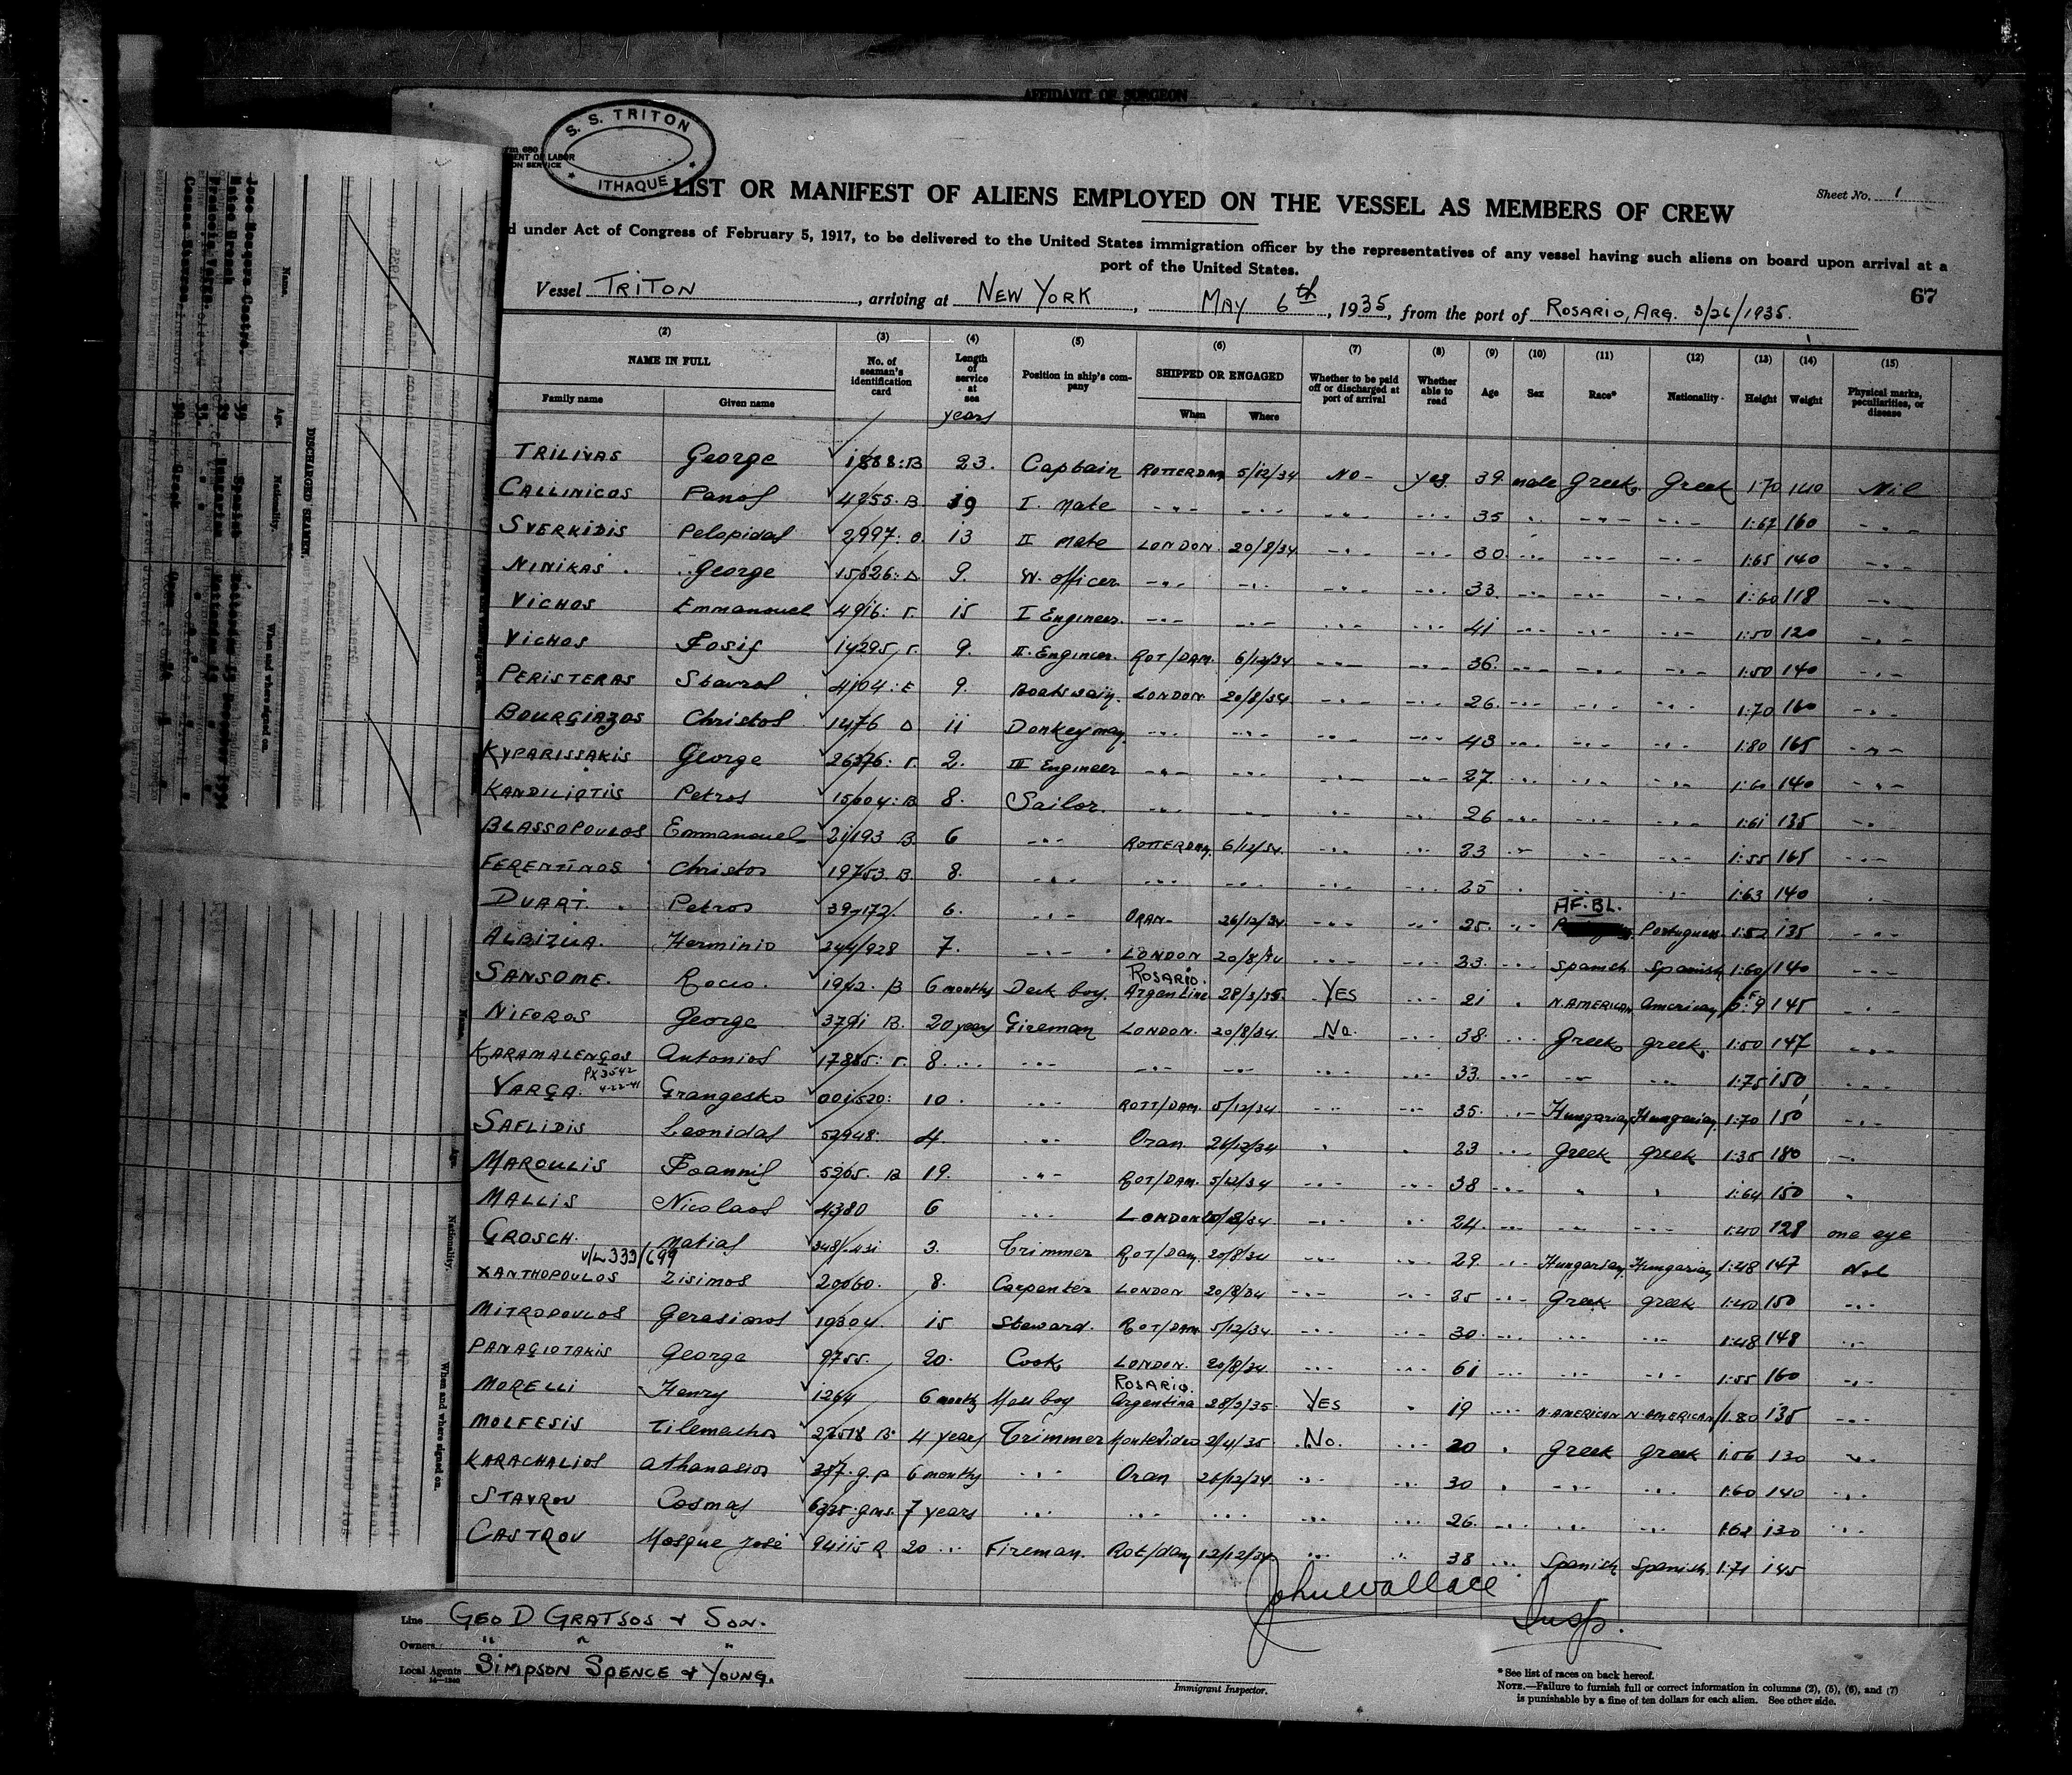 AFFIDAVIT OF SURGEON
S. S. TRITON
ITHAQUE
LIST OR MANIFEST OF ALIENS EMPLOYED ON THE VESSEL AS MEMBERS OF CREW
Sheet No. 1
d under Act of Congress of February 5, 1917, to be delivered to the United States immigration officer by the representatives of any vessel having such aliens on board upon arrival at a
port of the United States.
67
Vessel TRITON, arriving at NEW YORK, MAY 6th, 1935, from the port of ROSARIO, ARG. 3/26/1935.
(2) (3) (4) (5) (6) (7) (8) (9) (10) (11) (12) (13) (14) (15)
NAME IN FULL No. of seaman's identification card Length of service at sea Position in ship's company SHIPPED OR ENGAGED Whether to be paid off or discharged at port of arrival Whether able to read Age Sex Race* Nationality Height Weight Physical marks, peculiarities, or disease
Family name Given name years When Where
TRILIVAS George 1888:B 23. Captain ROTTERDAM 5/12/34 NO- yes 39 male Greek Greek 1:70 140 Nil
CALLINICOS Panos 4255. B 19 I. Mate -"- -"- -"- -"- 35 -"- -"- -"- 1:67 160 -"-
SVERKIDIS Pelopidas 2997: 13 II mate LONDON. 20/8/34 -"- -"- 30 -"- -"- -"- 1:65 140 -"-
NINIKAS. George 15826: Δ 9. W. officer -"- -"- -"- -"- 33. -"- -"- -"- 1:60 118 -"-
VICHOS Emmanouel 4916: Γ. 15 I Engineer. -"- -"- -"- -"- 41 -"- -"- -"- 1:50 120 -"-
VICHOS Iosif 14295, Γ. 9. II. Engineer. ROT/DAM. 6/12/34 -"- -"- 36. -"- -"- -"- 1:50 140 -"-
PERISTERAS Stavros 4104: E 9. Boatswain. LONDON 20/8/34 -"- -"- 26. -"- -"- -"- 1:70 160 -"-
BOURGIAZOS Christos 1476 Δ 11 Donkeyman. -"- -"- -"- -"- 43 -"- -"- -"- 1:80 165 -"-
KYPARISSAKIS George 26376: Γ. 2. III Engineer -"- -"- -"- -"- 27. -"- -"- -"- 1:60 140 -"-
KANDILIOTIS Petros 15604: B 8. Sailor. -"- -"- -"- -"- 26 -"- -"- -"- 1:61 135 -"-
BLASSOPOULOS Emmanouel 21193 B. 6 -"- ROTTERDAM. 6/12/34. -"- -"- 23 -"- -"- -"- 1:55 165 -"-
FERENTINOS Christos 19753. B. 8. -"- -"- -"- -"- -"- 25 -"- -"- 1:63 140 -"-
DUART. Petros 39172. 6. -"- ORAN- 26/12/34 -"- -"- 25. -"- AF. BL. Portuguese. 1:52 135 -"-
ALBIZUA. Herminio 244/928 7. -"- LONDON 20/8/34 -"- -"- 33. -"- Spanish Spanish 1:60 140 -"-
SANSOME. Rocco. 1942. B 6 months Deck boy. ROSARIO. Argentine 28/3/35. YES -"- 21 N. AMERICAN American 5.F9 145 -"-
NIFOROS George 3791 B. 20 years Fireman LONDON. 20/8/34. No. -"- 38. -"- Greek greek. 1:50 147 -"-
KARAMALENGOS Antonios 17885: Γ. 8. -"- -"- -"- -"- -"- 33. -"- -"- -"- 1:75 150 -"-
PX 3542 4-22-41
VARGA. Frangesko 001520: 10. -"- ROTT/DAM. 5/12/34 -"- -"- 35. -"- Hungarian Hungarian 1:70 150 -"-
SAFLIDIS Leonidas 52948. 4. -"- Oran 26/12/34 23 -"- Greek greek 1:35 180 -"-
MAROULIS Ioannis 5265. B 19. -"- ROT/DAM. 5/12/34 -"- -"- 38 -"- " " 1:64 150 "
MALLIS Nicolaos 4380 6 -"- LONDON 34. -"- -"- 24. -"- -"- -"- 1:40 128 one eye
GROSCH. Matias 348/.431 3. Trimmer ROT/DAM 20/8/34 -"- -"- 29. -"- Hungarian Hungarian 1:48 147 Nil
V/L 333/699
XANTHOPOULOS Zisimos 20060. 8. Carpenter LONDON 20/8/34 -"- -"- 35 -"- Greek greek 1:40 150 -"-
MITROPOULOS Gerasimos 19304. 15 Steward. ROT/DAM 5/12/34. -"- -"- 30. -"- -"- -"- 1:48 148 -"-
PANAGIOTAKIS George 9755. 20. Cook LONDON. 20/8/34. -"- -"- 61 -"- -"- -"- 1:55 160 -"-
MORELLI Henry 1264 6 months Mess boy ROSARIO. Argentina 28/3/35. YES " 19 -"- N. AMERICAN N. AMERICAN 1.80 135 -"-
MOLFESIS Tilemachos 27518 B. 4 years Trimmer Montevideo 2/4/35. No. -"- 20 Greek Greek 1:56 130 -"-
KARACHALIOS Athanasios 357. g.p 6 months -"- Oran 26/12/34 -"- -"- 30 -"- -"- 1:60 140 -"-
STAVROU Cosmas 6335. gms. 7 years -"- -"- -"- -"- -"- 26. -"- -"- -"- 1:62 130 -"-
CASTROU Mosque José 94115 R 20 -"- Fireman. Rot/dam 12/12/34. -"- -"- 38 -"- Spanish Spanish 1:71 145
John Wallace
Insp.
Line GEO D GRATSOS & SON.
Owners " " "
Local Agents SIMPSON SPENCE & YOUNG.
Immigrant Inspector.
*See list of races on back hereof.
NOTE.—Failure to furnish full or correct information in columns (2), (5), (6), and (7)
is punishable by a fine of ten dollars for each alien. See other side.